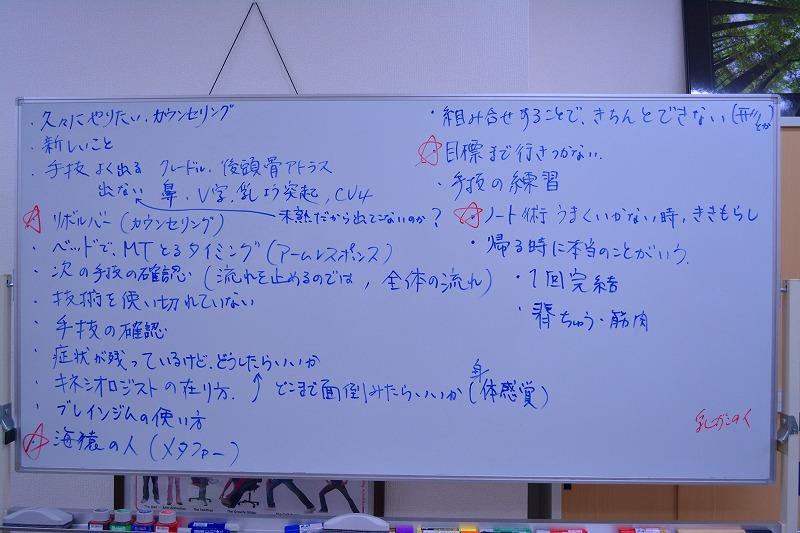 ・久々にやりたい、カウンセリング
・新しいこと
・手技 よく出る クレードル、後頭骨アトラス
出ない 鼻、V字、乳よう突起、CV4
未熟だから出てこないのか？
リボルバー（カウンセリング）
・ベッドで、MTとるタイミング（アームレスポンス）
・次の手技の確認（流れを止めるのでは，全体の流れ）
・技術を使い切れていない
・手技の確認
・症状が残っているけど、どうしたらいいか
・キネシオロジストの在り方．↑どこまで面倒みたらいいか（身体感覚）
・ブレインジムの使い方
・海猿の人（メタファー）
・組み合せすることで、きちんとできない（とか）
・目標まで行きつかない．
・手技の練習
・ノート術 うまくいかない時，ききもらし
・帰る時に本当のことがいう．
・1回完結
・脊ちゅう・筋肉